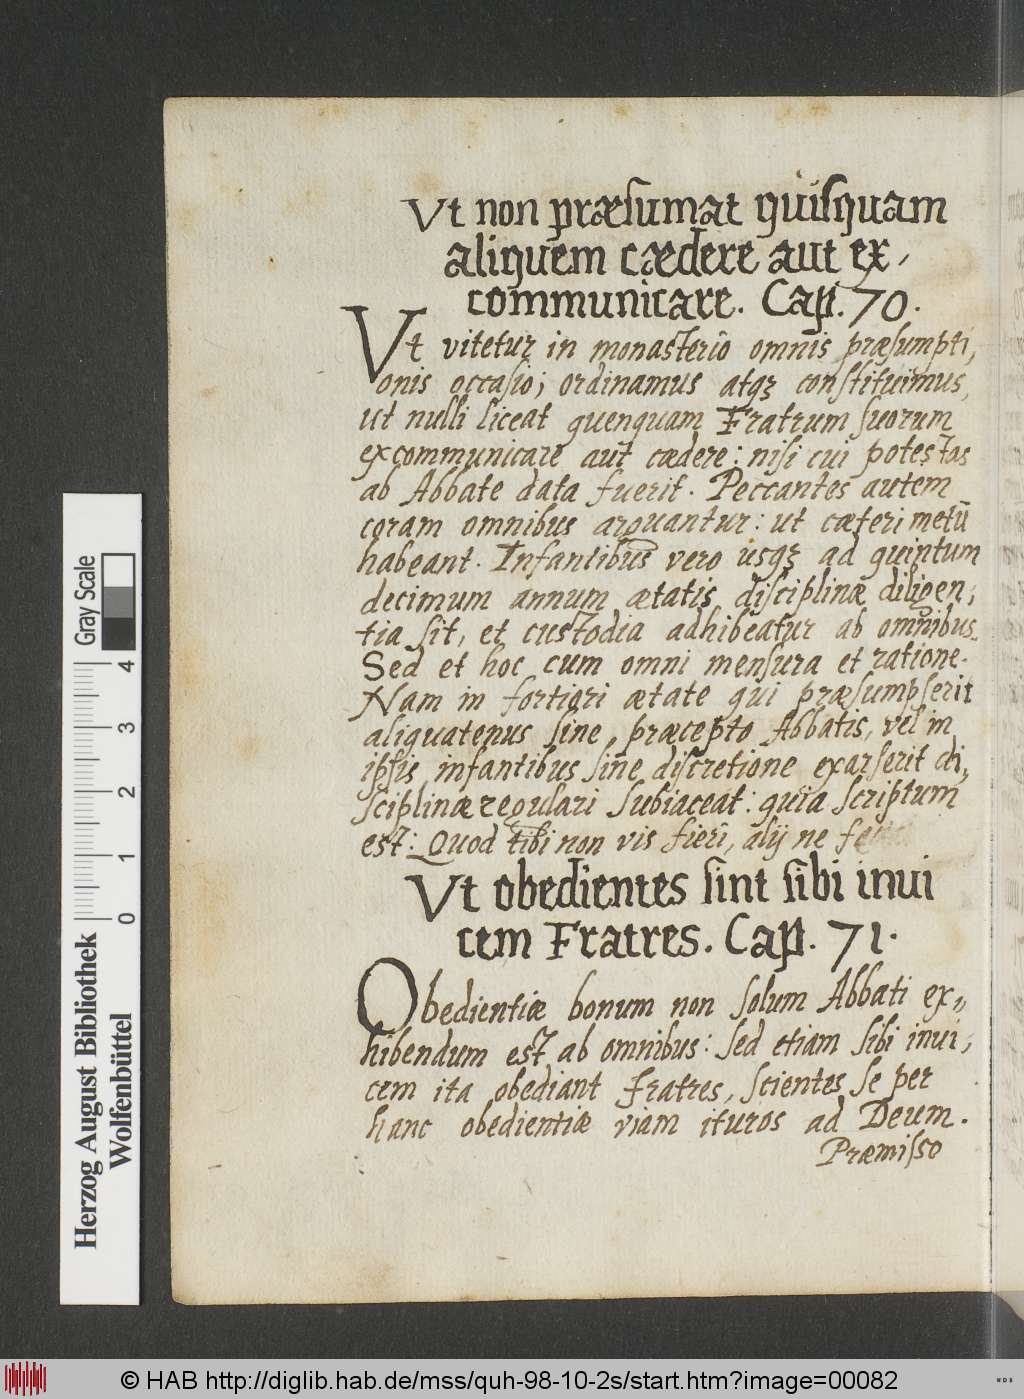 Vt non præsumat quisquam
aliquem cædere aut ex,
communicare. Cap. 70.
Vt vitetur in monasterio omnis præsumpti,
onis occasio; ordinamus atqꝫ constituimus,
ut nulli liceat quenquam Fratrum suorum
excommunicare aut cædere: nisi cui potestas
ab Abbate data fuerit. Peccantes autem
coram omnibus arguantur: ut cæteri metū
habeant. Infantibus vero usqꝫ ad quintum
decimum annum ætatis disciplinæ diligen,
tia sit, et custodia adhibeatur ab omnibus.
Sed et hoc cum omni mensura et ratione.
Nam in fortiori ætate qui præsumpserit
aliquatenus sine præcepto Abbatis, vel in
ipsis infantibus sine discretione exarserit di,
sciplinæ regulari subiaceat: quia scriptum
est: Quod tibi non vis fieri, alij ne
Vt obedientes sint sibi inui
cem Fratres. Cap. 71.
Obedientiæ bonum non solum Abbati ex,,
hibendum est ab omnibus: sed etiam sibi inui,
cem ita obediant Fratres, scientes se per
hanc obedientiæ viam ituros ad Deum.
Præmisso
Gray Scale
4
3
2
1
0
Herzog August Bibliothek
Wolfenbüttel
© HAB http://diglib.hab.de/mss/quh-98-10-2s/start.htm?image=00082